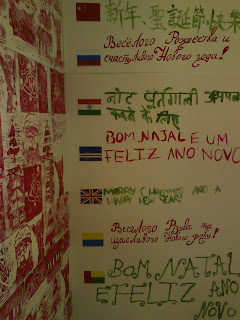 新年、聖誕節快樂
Весёлого Рождества и
счастливого Нового года!
नोट पुर्तगाली अनुवाद
करने के लिए
BOM NAJAL E UM
FELIZ ANO NOVO
MERRY CHRISTMAS AND A
HAPPY NEW YEAR!
Веселого Різдва та
щасливого Нового року!
BOM NATAL
E FELIZ ANO
NOVO